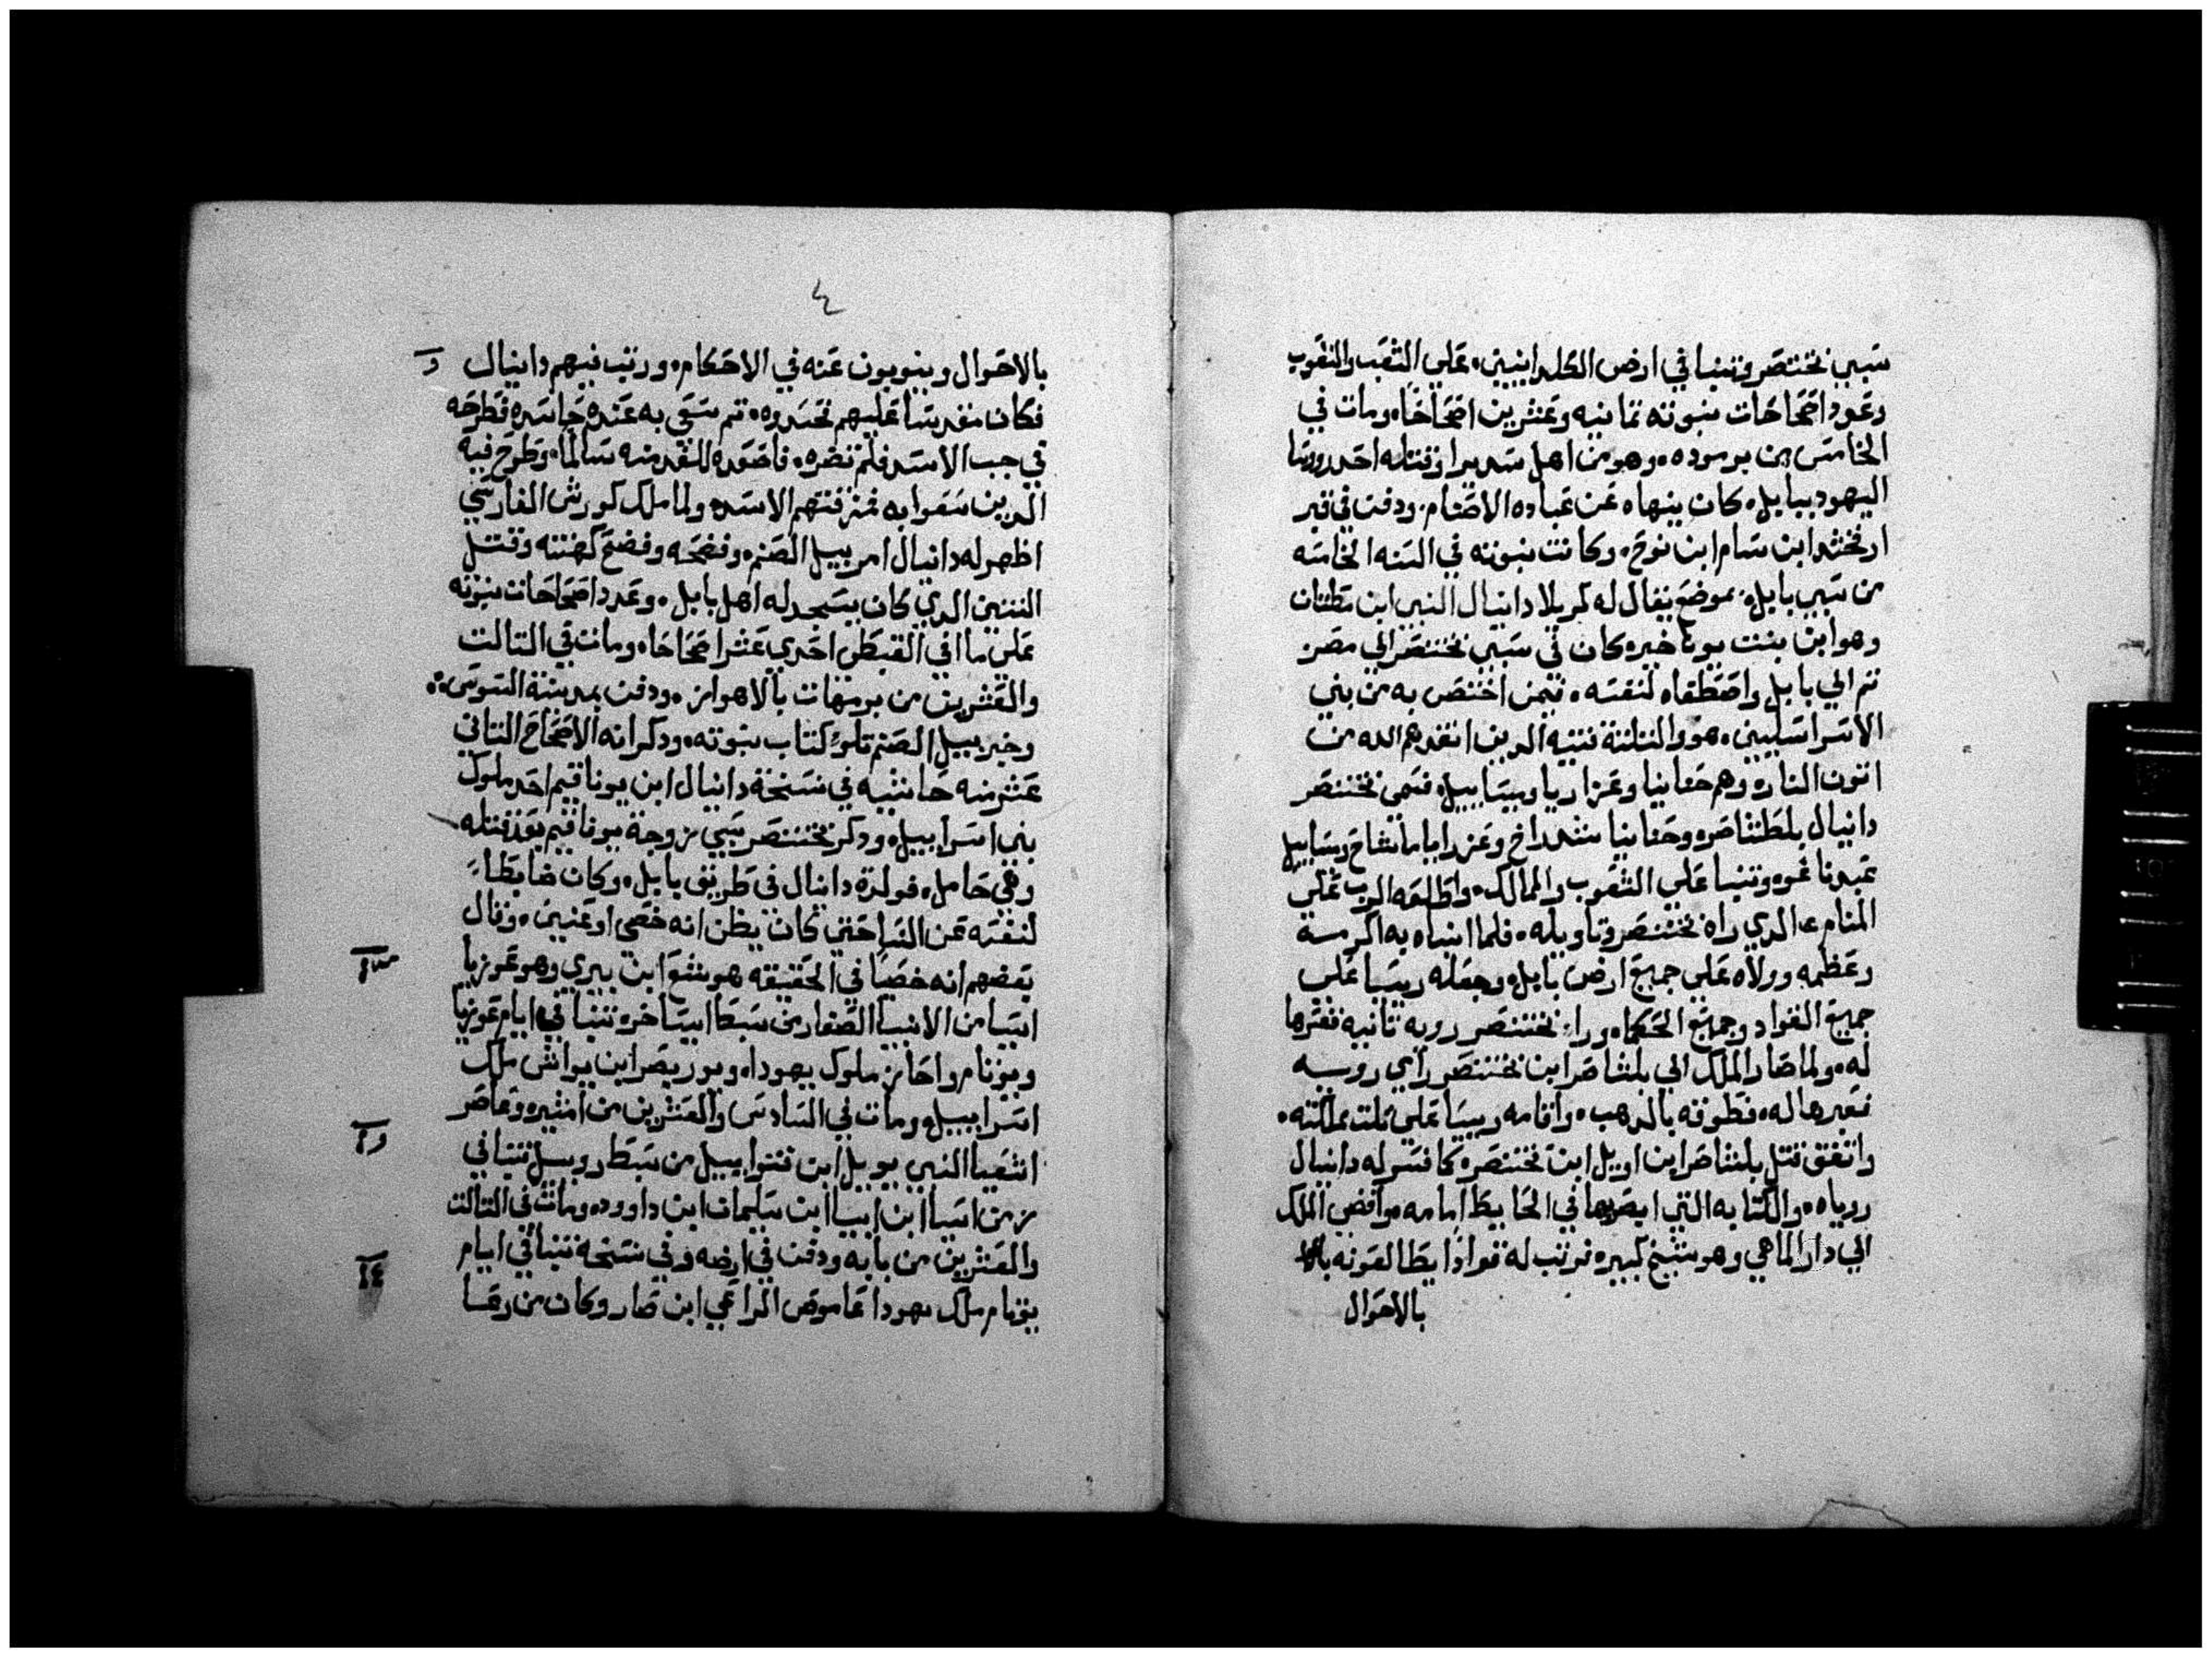 سبي بختنصر وتنبا في ارض الكلدانيين، علي الشعب والشعوب
وعدد اصحاحات نبوته ثمانيه وعشرين اصحاحا، ومات في
الخامس من برموده، وهو من اهل اذ قتله احد روسا
اليهود ببابل، كان ينهاه عن عباده الاصنام، ودفن في قبر
ارفخشد ابن سام ابن نوح، وكانت نبوته في السنه الخامسه
من سبي بابل، بموضع يقال له كربلا دانيال النبي ابن
وهو ابن بنت يوناخير، كان في سبي بختنصر الي مصر
تم الي بابل واصطفاه لنفسه، فيمن اختص به من بني
الاسراسليين، هو والتلتة فتيه الدين انقدهم الله من
اتون النار، وهم حنانيا وعزاريا وميساييل، فسمي بختنصر
دانيال بلطشاصر، وحنانيا شدراخ وعزرايا ماشاخ وميساييل
عبدناغو، وتنبا علي الشعوب والممالك، واطلعه الرب علي
المنام الدي راه بختنصر وتاويله، فلما انباه به اكرمه
وعظمه وولاه علي جميع ارض بابل، وجعله ريسا علي
جميع القواد وجميع الحكما، وراء بختنصر رويه تانيه ففسرها
له، ولما صار الملك الي بلشاصر ابن بختنصر راي رويه
فعبرها له، فطوقه بالدهب، واقامه ريسا علي تلت مملكته،
واتفق قتل بلشاصر ابن اويل ابن بختنصر، كما فسر له دانيال
روياه، والكتابه التي ابصرها في الحايط امامه، وافضي الملك
الي دار الماهي وهو شيخ كبير، فرتب له قوادا يطالعونه
بالاحوال
٤
بالاحوال وينوبون عنه في الاحكام، ورتب نبيهم دانيال
فكان مقدسا عليهم فحسدوه، تم سعي به عنده حاسده فطرحه
في جب الاسد فلم تضره، فاصعده للتقدمه سالما، وطرح فيه
الدين سعوا به فمزقتهم الاسد، ولما ملك كورش الفارسي
اظهر له دانيال امر بييل الصنم، وفضحه وفضح كهنته وقتل
التنين الدي كان يسجد له اهل بابل، وعدد اصحاحات نبوته
علي ما في القبطي احدي عشر اصحاحا، ومات في التالت
والعشرين من برمهات بالاهواز، ودفن بمدينة السوس
وخبر بييل الصنم تلو كتاب نبوته، ودكر انه الاصحاح التاني
عشر منه حاشيه في نسخة دانيال ابن يوناقيم احد ملوك
بني اسراييل، ودكر بختنصر سبي زوجة يوناقيم بعد قتله
وهي حامل، فولدة دانيال في طريق بابل، وكان ضابطا
لنفسه عن النسا حتي كان يظن انه خصي او عنين، وقال
بعضهم انه خصيا في الحقيقه هوشع ابن بيري وهو عوزيا
ايسا من الانبيا الصغار من سبط ايساخر، تنبا في ايام عوزيا
ويونام واحاز ملوك يهودا، ويوربعم ابن يواش ملك
اسراييل، ومات في السادس والعشرين من امشير، وعاصر
اشعيا النبي يوييل ابن فتواييل من سبط روبيل تنبا في
زمن اسا ابن ابيا ابن سليمان ابن داوود، ومات في التالت
والعشرين من بابه ودفن في ارضه وفي نسخه تنبا في ايام
يونام ملك يهودا عاموص الراعي ابن تصار وكان من رعا